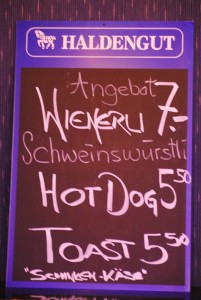 HALDENGUT
Angebot
WIENERLI 7.-
Schweinswürstli
HOT DOG 5.50
TOAST 5.50
"SCHINKEN-KÄSE"